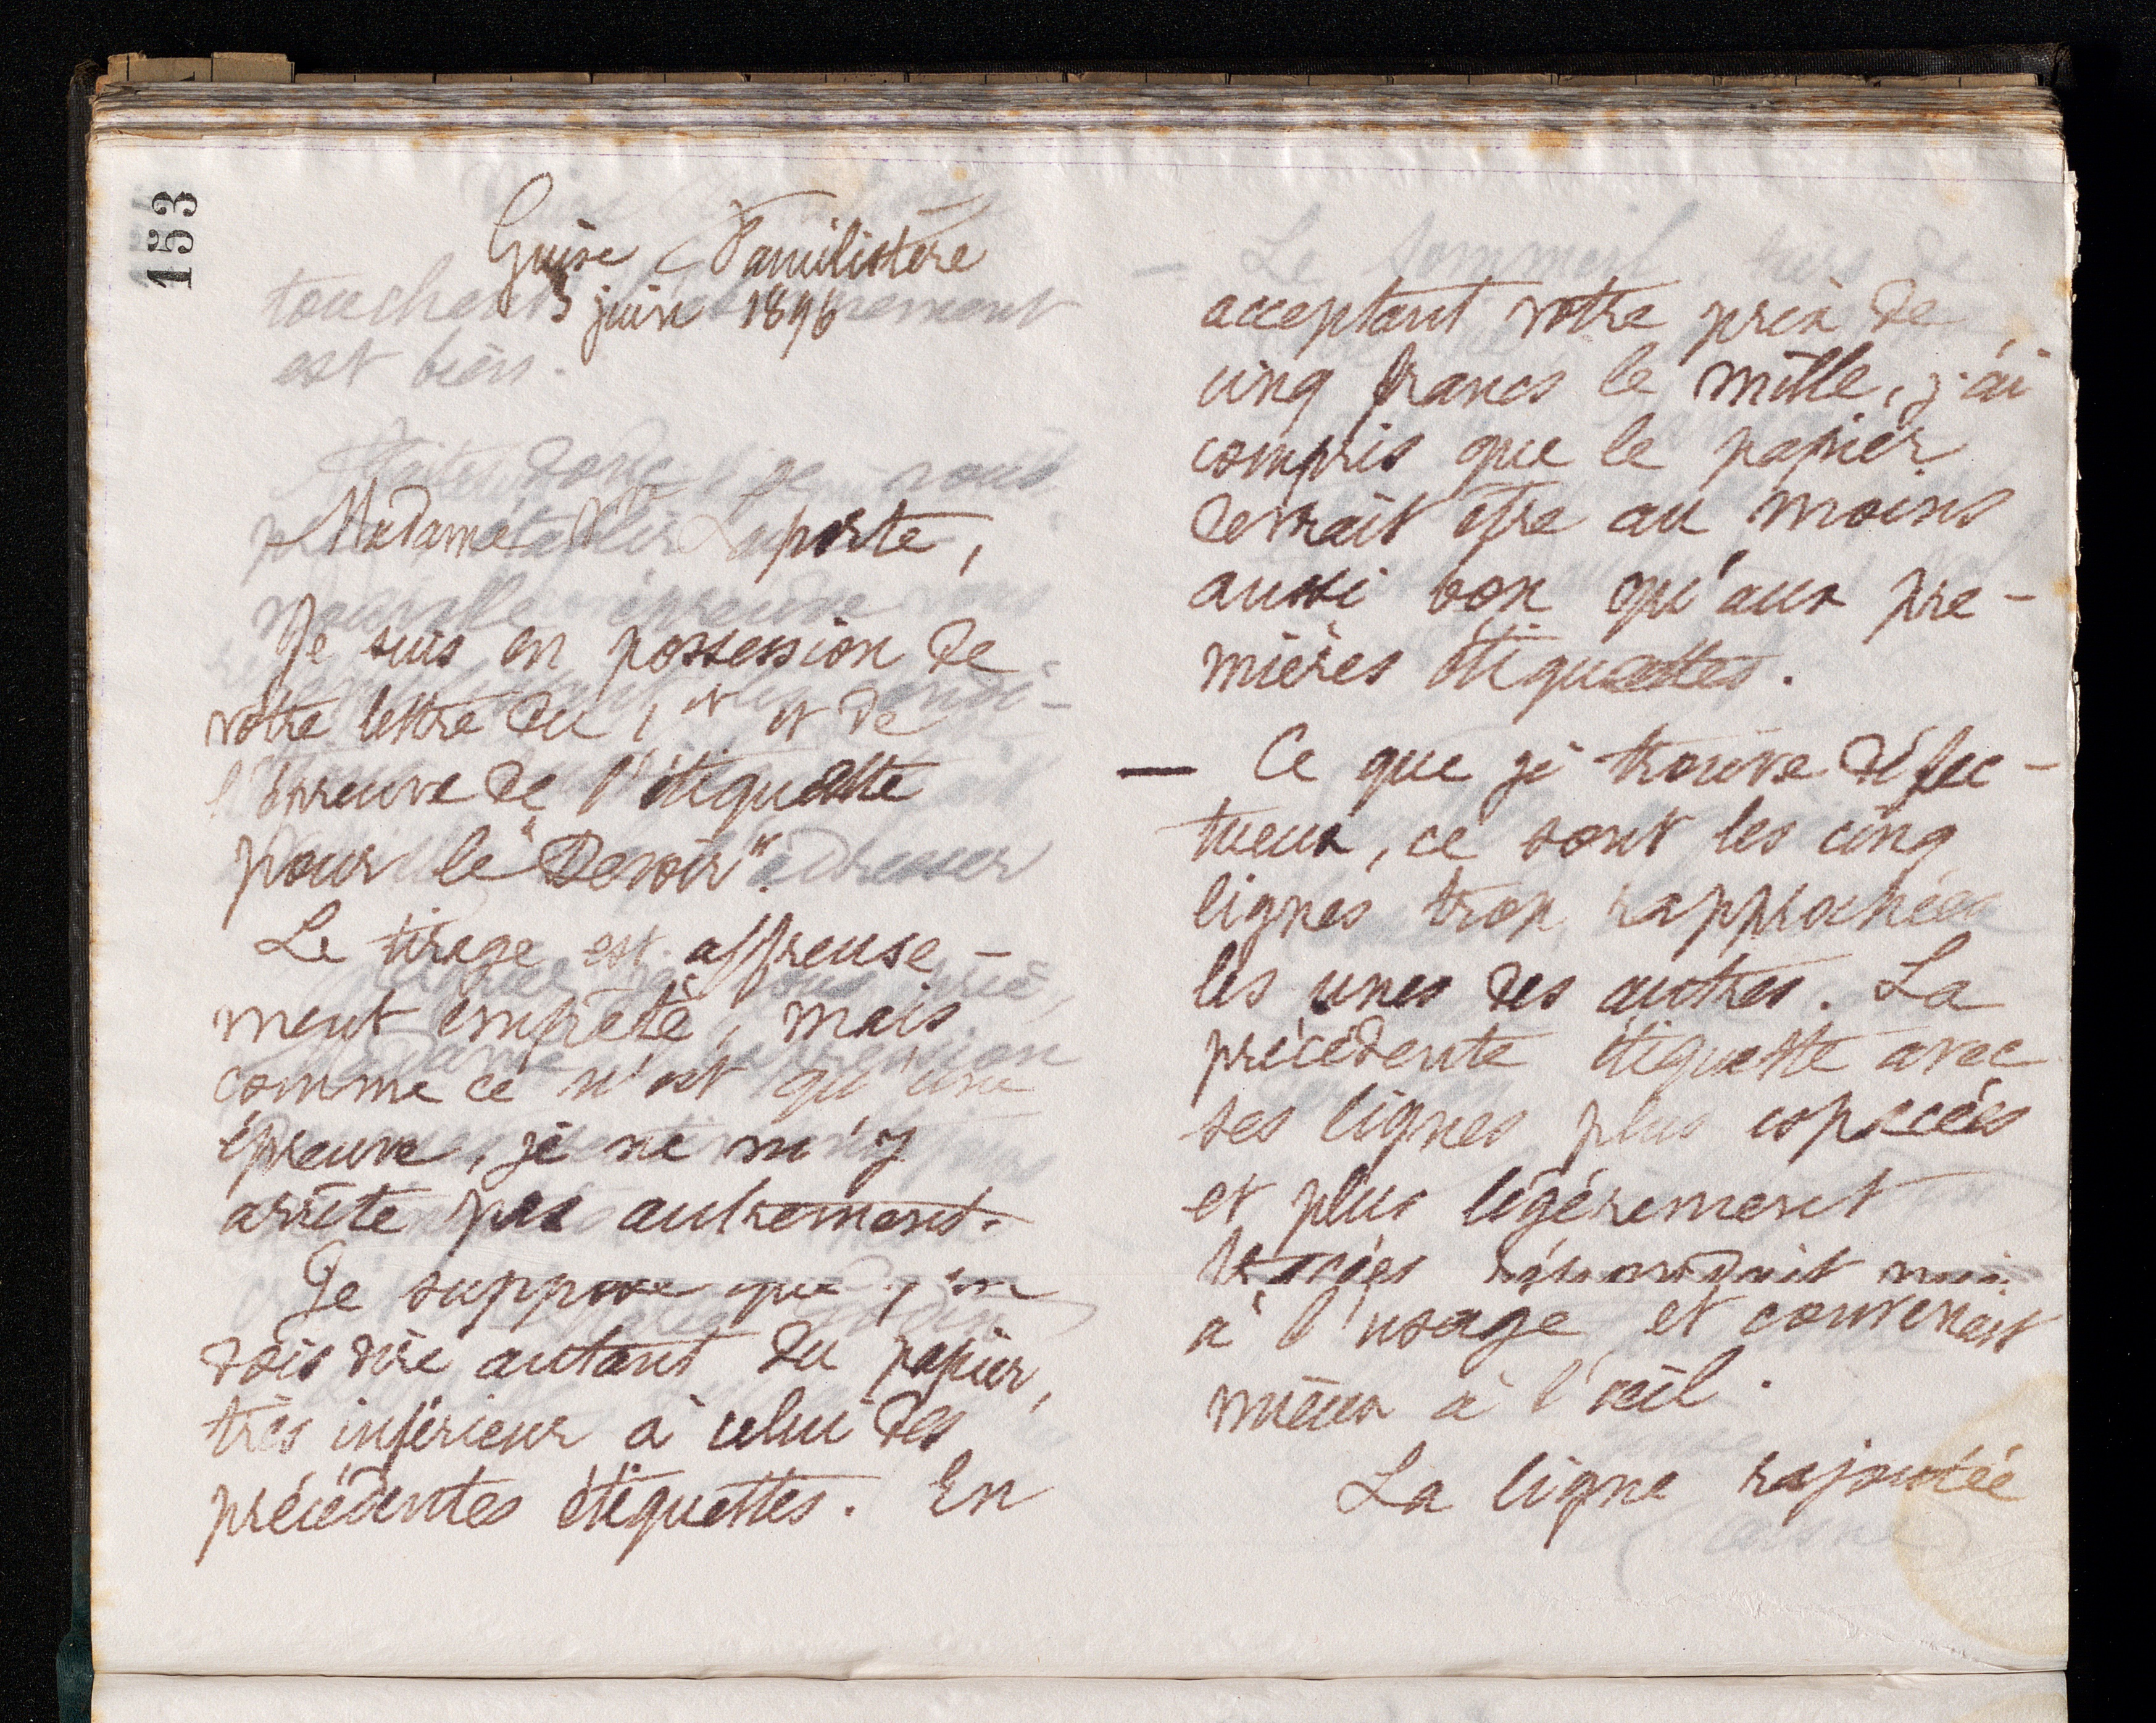 153
Guise Familistère
3 juin 1896
Madame Vve Laporte,
Je suis en possession de
votre lettre du 1er et de
l'épreuve de l'étiquette
pour le "Devoir".
Le tirage est affreuse-
ment empâté, mais
comme ce n'est qu'une
épreuve, je ne m'y
arrête pas autrement.
Je suppose que j'en
dois dire autant du papier,
très inférieur à celui des
précédentes étiquettes. En
acceptant votre prix de
cinq francs le mille, j'ai
compris que le papier
devrait être au moins
aussi bon qu'aux pre-
mières étiquettes.
— Ce que je trouve défec-
tueux, ce sont les cinq
lignes trop rapprochées
les unes des autres. La
précédente étiquette avec
ses lignes plus espacées
et plus légèrement
tracées répondait mieux
à l'usage et convenait
mieux à l'œil.
La ligne rajoutée